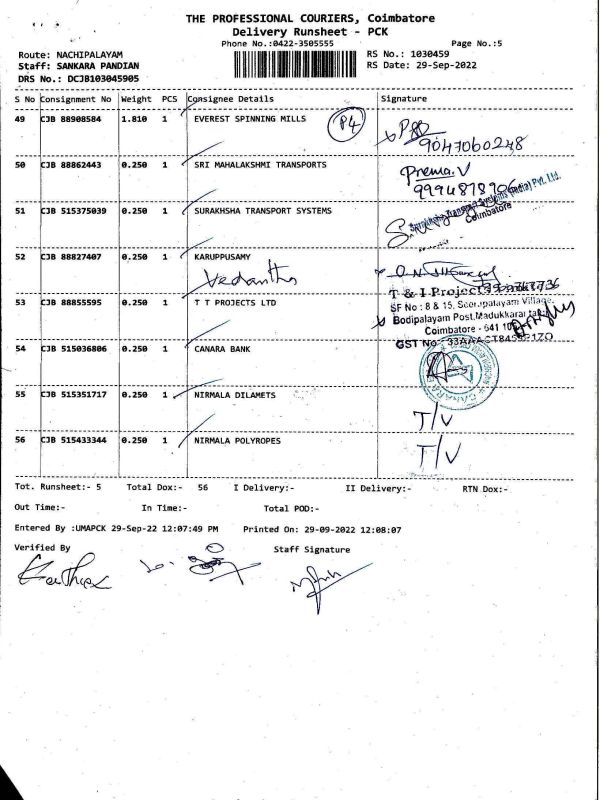 THE PROFESSIONAL COURIERS, Coimbatore
Delivery Runsheet - PCK
Phone No.:0422-3505555 Page No.:5
Route: NACHIPALAYAM RS No.: 1030459
Staff: SANKARA PANDIAN RS Date: 29-Sep-2022
DRS No.: DCJB103045905
S No Consignment No Weight PCS Consignee Details Signature
49 CJB 88908584 1.810 1 EVEREST SPINNING MILLS P4
9047060248
50 CJB 88862443 0.250 1 SRI MAHALAKSHMI TRANSPORTS Prema.V
51 CJB 515375039 0.250 1 SURAKHSHA TRANSPORT SYSTEMS
Suraksha Transport Systems (India) Pvt. Ltd.
Coimbatore
52 CJB 88827407 0.250 1 KARUPPUSAMY
Vedantha
53 CJB 88855595 0.250 1 T T PROJECTS LTD
T & I Project
SF No : 8 & 15, Seerapalayam Village,
Bodipalayam Post, Madukkarai
Coimbatore - 641 105
GST No
54 CJB 515036806 0.250 1 CANARA BANK
CANARA
55 CJB 515351717 0.250 1 NIRMALA DILAMETS T/V
56 CJB 515433344 0.250 1 NIRMALA POLYROPES T/V
Tot. Runsheet:- 5 Total Dox:- 56 I Delivery:- II Delivery:- RTN Dox:-
Out Time:- In Time:- Total POD:-
Entered By :UMAPCK 29-Sep-22 12:07:49 PM Printed On: 29-09-2022 12:08:07
Verified By Staff Signature